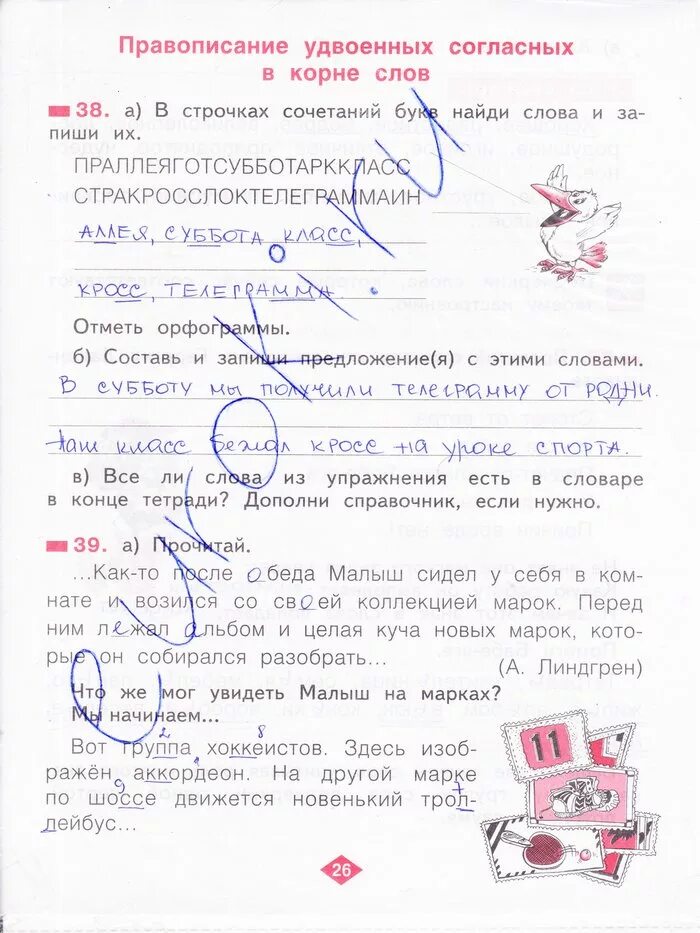 Правописание удвоенных согласных
в корне слов
38. а) В строчках сочетаний букв найди слова и за-
пиши их.
ПРАЛЛЕЯГОТСУББОТАРККЛАСС
СТРАКРОССЛОКТЕЛЕГРАММАИН
АЛЛЕЯ, СУББОТА, КЛАСС,
КРОСС, ТЕЛЕГРАММА.
Отметь орфограммы.
б) Составь и запиши предложение(я) с этими словами.
В СУББОТУ МЫ ПОЛУЧИЛИ ТЕЛЕГРАММУ ОТ РОДНИ.
Наш класс бежал кросс на уроке спорта.
в) Все ли слова из упражнения есть в словаре
в конце тетради? Дополни справочник, если нужно.
39. а) Прочитай.
...Как-то после обеда Малыш сидел у себя в ком-
нате и возился со своей коллекцией марок. Перед
ним лежал альбом и целая куча новых марок, кото-
рые он собирался разобрать...
(А. Линдгрен)
Что же мог увидеть Малыш на марках?
Мы начинаем...
2 8
Вот группа хоккеистов. Здесь изоб-
ражён аккордеон. На другой марке
9 7
по шоссе движется новенький трол-
лейбус...
11
26